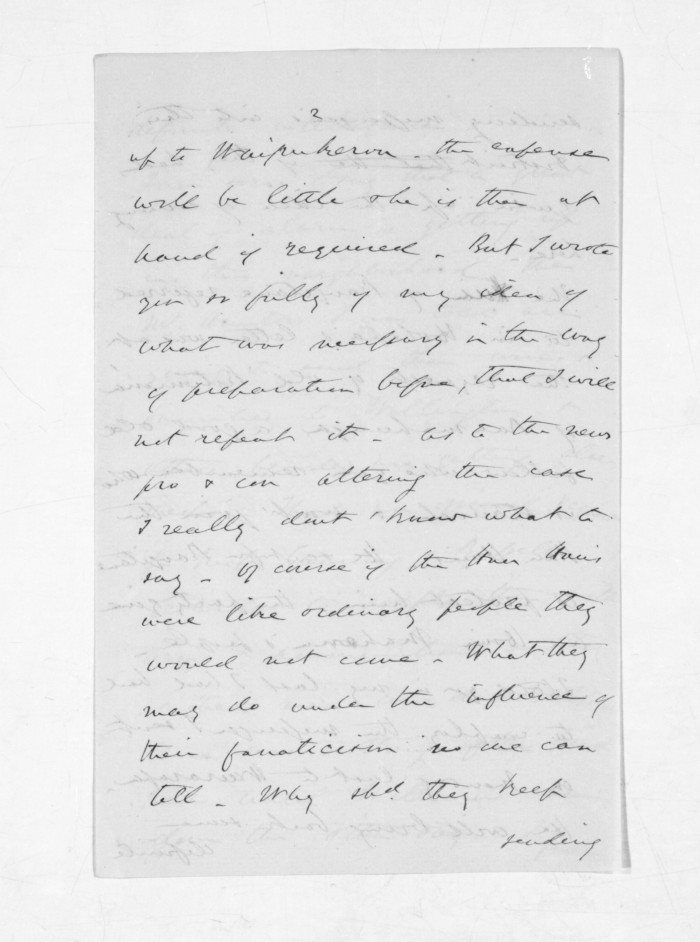 2
up to Waipukerau - the expense
will be little & she is then at
hand if required - But I wrote
you so fully of my idea of
what was necessary in the way
of preparation before, that I will
not repeat it - As to the news
pro & con altering the case
I really dont know what to
say - Of course if the Hau Haus
were like ordinary people they
would not come - What they
may do under the influence of
their fanaticism no one can
tell - Why shd. they keep
sending